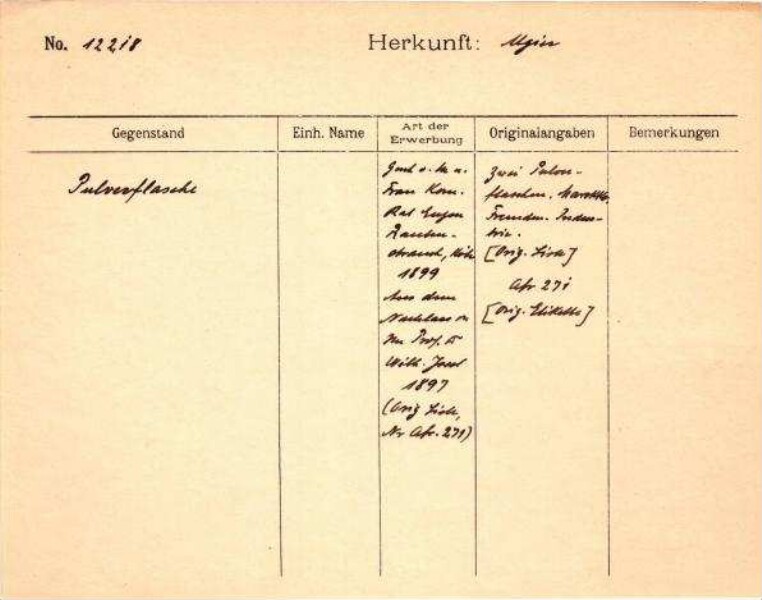 No. 12218
Herkunft: Algier
Gegenstand
Einh. Name
Art der
Erwerbung
Originalangaben
Bemerkungen
Pulverflasche
Gesch. v. H. u.
Frau Kom.
Rat Eugen
Rauten-
strauch, Köln
1899
Aus dem
Nachlass v.
Hn Prof. Dr
Wilh. Joest
1897
(Orig Liste,
Nr Afr. 271)
Zwei Pulver-
flaschen.
Fremden-Indus-
trie.
[Orig. Liste]
Afr 271
[Orig. Etikette]